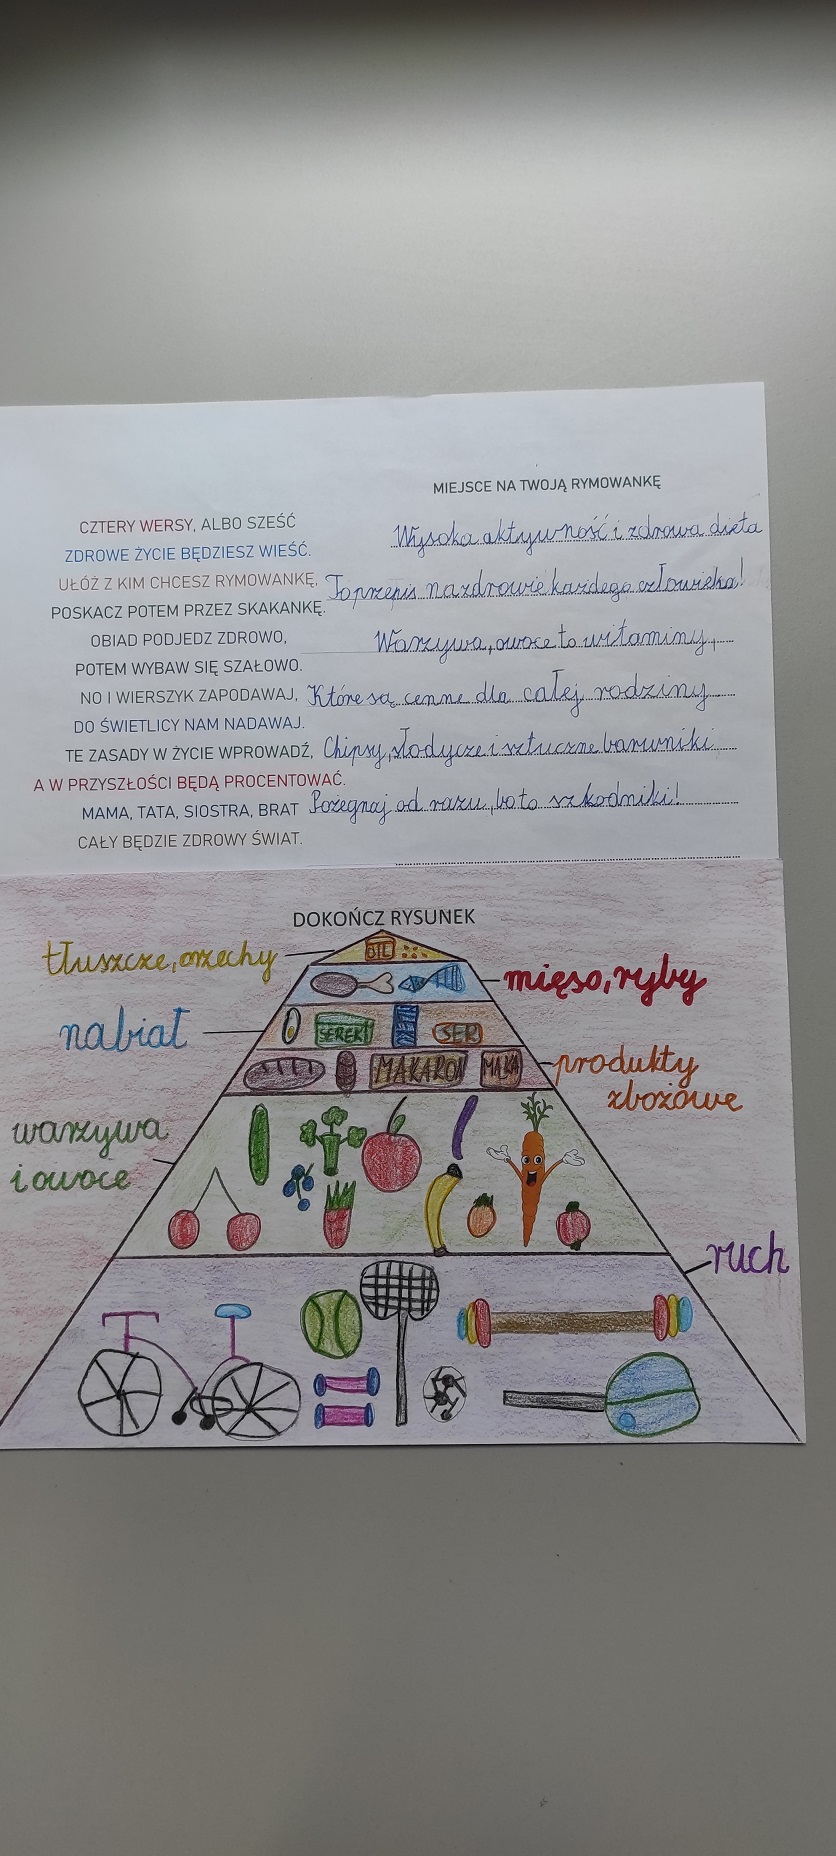 MIEJSCE NA TWOJĄ RYMOWANKĘ
CZTERY WERSY, ALBO SZEŚĆ
ZDROWE ŻYCIE BĘDZIESZ WIEŚĆ.
UŁÓŻ Z KIM CHCESZ RYMOWANKĘ,
POSKACZ POTEM PRZEZ SKAKANKĘ.
OBIAD PODJEDZ ZDROWO,
POTEM WYBAW SIĘ SZAŁOWO.
NO I WIERSZYK ZAPODAWAJ,
DO ŚWIETLICY NAM NADAWAJ.
TE ZASADY W ŻYCIE WPROWADŹ,
A W PRZYSZŁOŚCI BĘDĄ PROCENTOWAĆ.
MAMA, TATA, SIOSTRA, BRAT
CAŁY BĘDZIE ZDROWY ŚWIAT.
Wysoka aktywność i zdrowa dieta
To przepis na zdrowie każdego człowieka!
Warzywa, owoce to witaminy,
Które są cenne dla całej rodziny
Chipsy, słodycze i sztuczne barwniki
Pożegnaj od razu, bo to szkodniki!
DOKOŃCZ RYSUNEK
tłuszcze, orzechy
OIL
mięso, ryby
nabiał
SEREK
SER
MAKARON
MĄKA
produkty
zbożowe
warzywa
i owoce
ruch